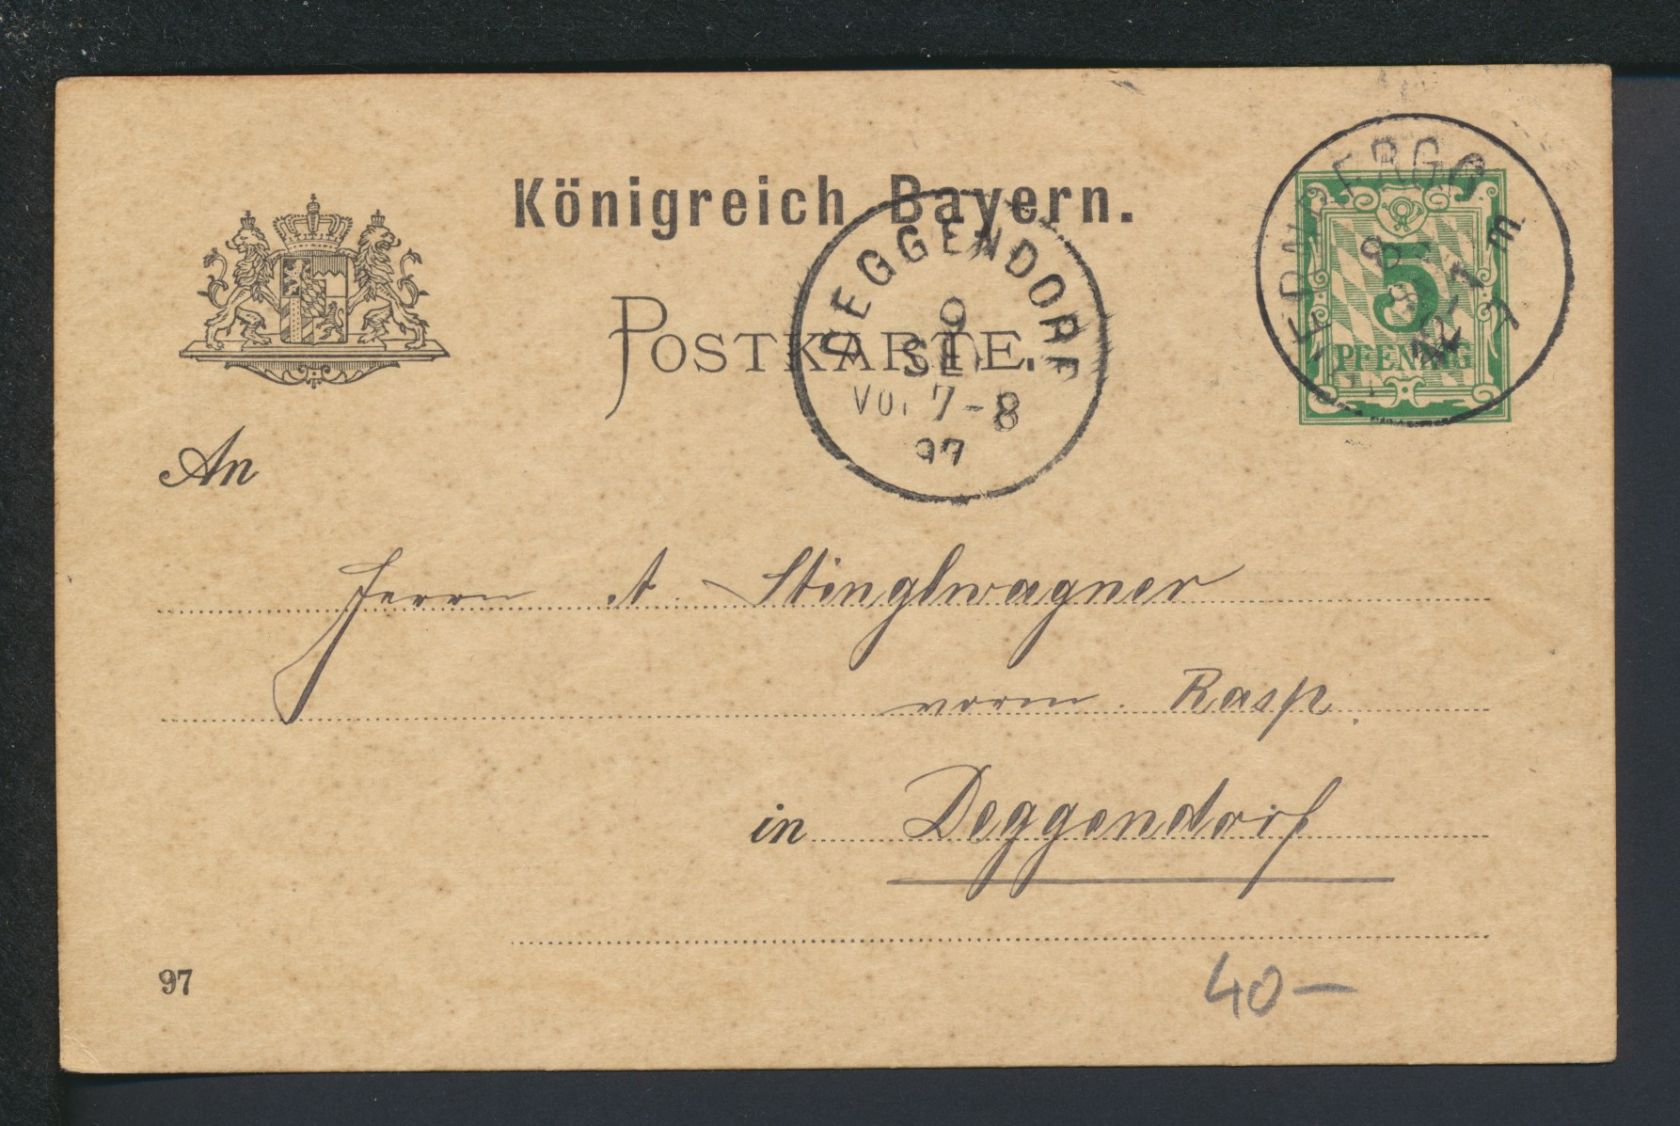 Königreich Bayern.
POSTKARTE.
5
PFENNIG
DEGGENDORF
9
SEP
Vor 7-8
97
An
Herrn A. Stinglwagner
vorm. Rasp.
in Deggendorf
97
40-